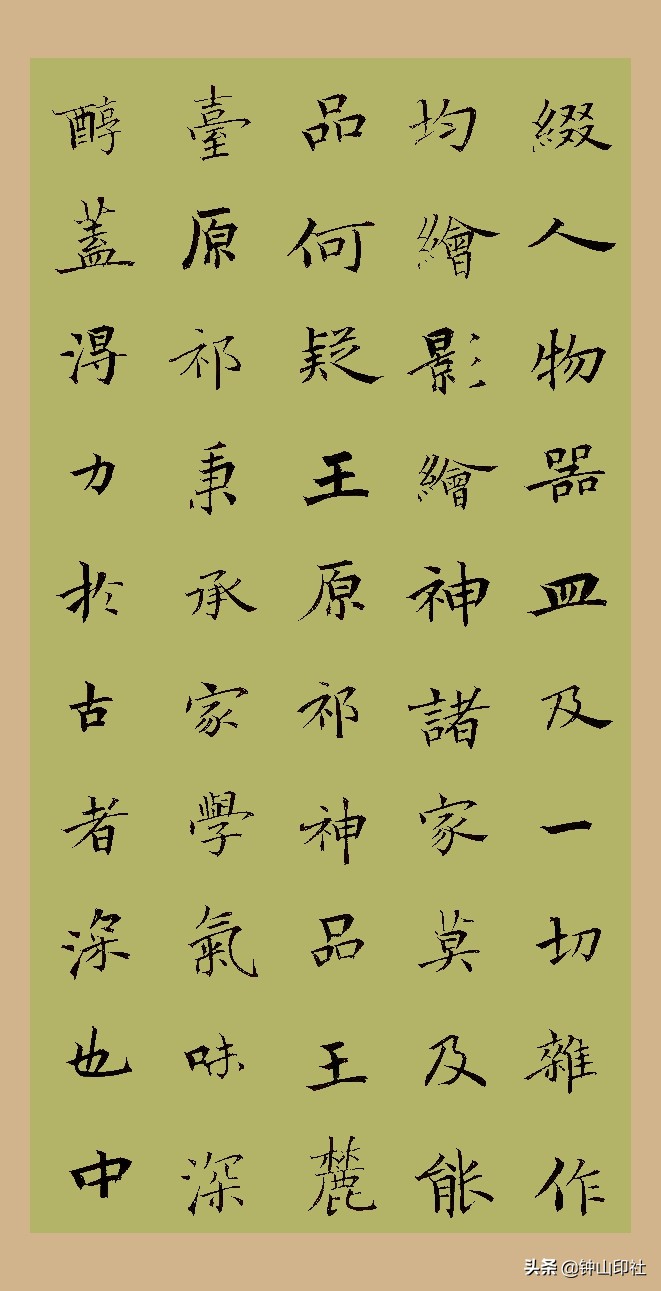 綴人物器皿及一切雜作
均繪影繪神諸家莫及能
品何疑王原祁神品王麓
臺原祁秉承家學氣味深
醇蓋淂力於古者深也中
头条 @钟山印社